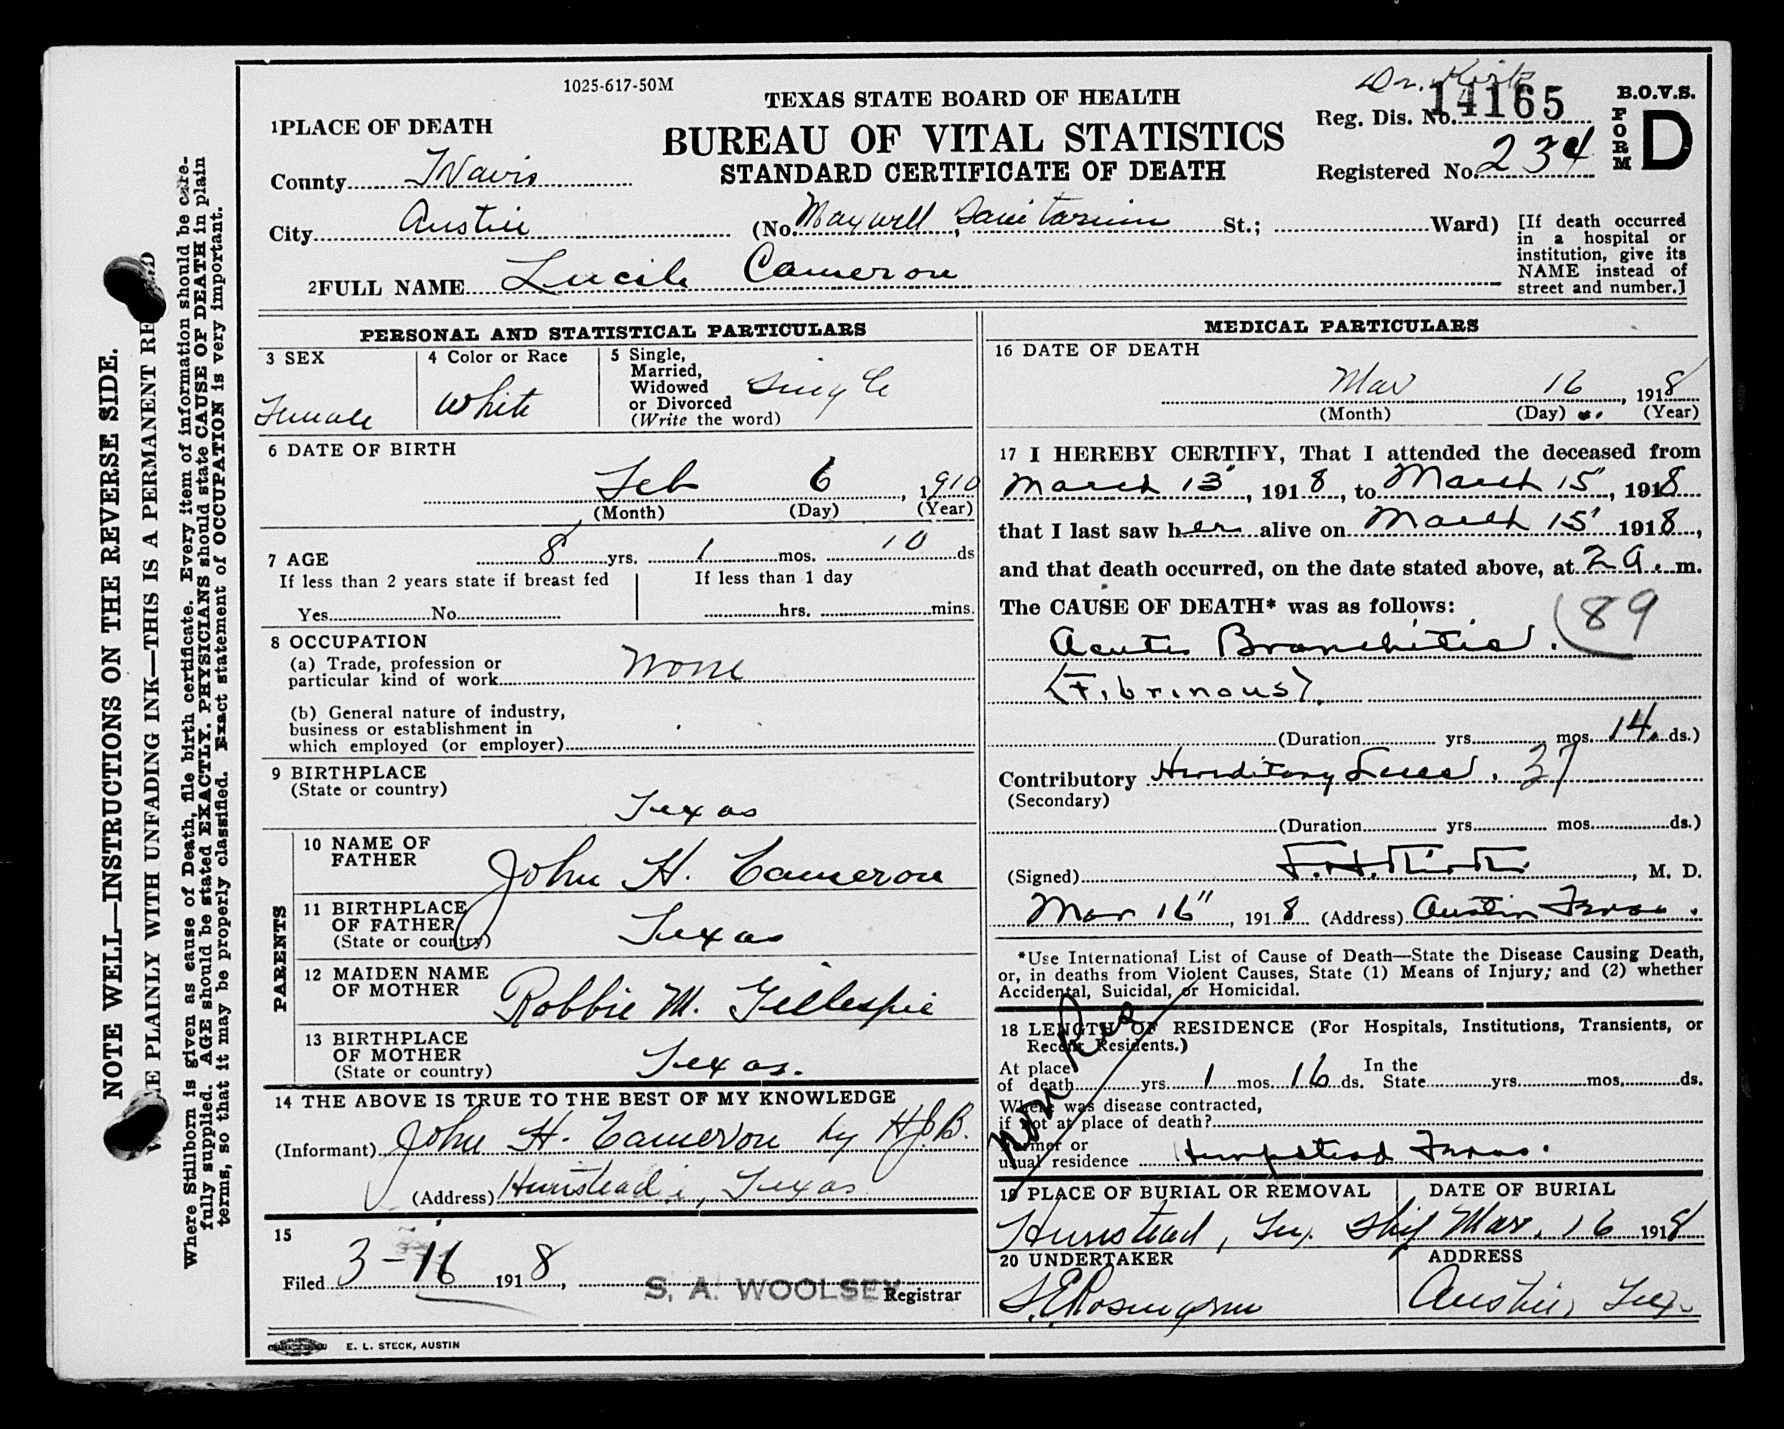 1025-617-50M
TEXAS STATE BOARD OF HEALTH
BUREAU OF VITAL STATISTICS
STANDARD CERTIFICATE OF DEATH
Dr. Kirk
Reg. Dis. No. 14165
Registered No. 234
B.O.V.S.
FORM D
1PLACE OF DEATH
County Travis
City Austin (No. Maxwell, Sanitarium St.; Ward)
[If death occurred
in a hospital or
institution, give its
NAME instead of
street and number.]
2FULL NAME Lucile Cameron
NOTE WELL—INSTRUCTIONS ON THE REVERSE SIDE.
PLAINLY WITH UNFADING INK—THIS IS A PERMANENT
Where Stillborn is given as cause of Death, file birth certificate. Every item of information should be care-
fully supplied. AGE should be stated EXACTLY. PHYSICIANS should state CAUSE OF DEATH in plain
terms, so that it may be properly classified. Exact statement of OCCUPATION is very important.
PERSONAL AND STATISTICAL PARTICULARS
3 SEX
Female
4 Color or Race
White
5 Single,
Married,
Widowed
or Divorced
(Write the word)
Single
6 DATE OF BIRTH
Feb 6, 1910
(Month) (Day) (Year)
7 AGE 8 yrs. 1 mos. 10 ds
If less than 2 years state if breast fed
Yes No
If less than 1 day
hrs. mins.
8 OCCUPATION
(a) Trade, profession or
particular kind of work None
(b) General nature of industry,
business or establishment in
which employed (or employer)
9 BIRTHPLACE
(State or country)
Texas
PARENTS
10 NAME OF
FATHER
John H. Cameron
11 BIRTHPLACE
OF FATHER
(State or country)
Texas
12 MAIDEN NAME
OF MOTHER
Robbie M. Gillespie
13 BIRTHPLACE
OF MOTHER
(State or country)
Texas.
14 THE ABOVE IS TRUE TO THE BEST OF MY KNOWLEDGE
(Informant) John H. Cameron by H.J.B.
(Address) Texas
15
Filed 3-16 1918, S. A. WOOLSEY Registrar
E. L. STECK, AUSTIN
MEDICAL PARTICULARS
16 DATE OF DEATH
Mar 16, 1918
(Month) (Day) (Year)
17 I HEREBY CERTIFY, That I attended the deceased from
March 13, 1918, to March 15, 1918
that I last saw her alive on March 15 1918,
and that death occurred, on the date stated above, at 2 a. m.
The CAUSE OF DEATH* was as follows:
Acute Bronchitis. 89
(Fibrinous).
(Duration yrs. mos. 14. ds.)
Contributory Hereditary Lues. 37
(Secondary)
(Duration yrs. mos. ds.)
(Signed) , M. D.
Mar 16", 1918 (Address) Austin Texas.
*Use International List of Cause of Death—State the Disease Causing Death,
or, in deaths from Violent Causes, State (1) Means of Injury; and (2) whether
Accidental, Suicidal, or Homicidal.
non Res
18 LENGTH OF RESIDENCE (For Hospitals, Institutions, Transients, or
Recent Residents.)
At place
of death yrs. 1 mos. 16 ds.
In the
State yrs. mos. ds.
Where was disease contracted,
if not at place of death?
Former or
usual residence Hempstead Texas.
19 PLACE OF BURIAL OR REMOVAL
Tex. Ship
DATE OF BURIAL
Mar. 16 1918
20 UNDERTAKER
ADDRESS
Austin, Tex.